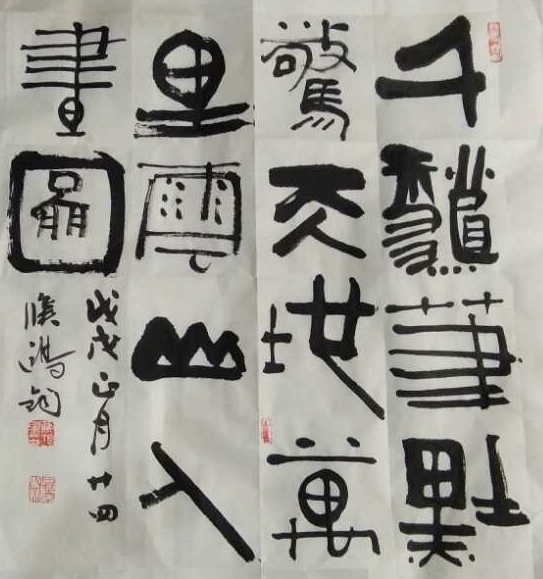 千秋筆墨
驚天地萬
里雲山入
畫圖
戊戌正月廿四
鴻鈞